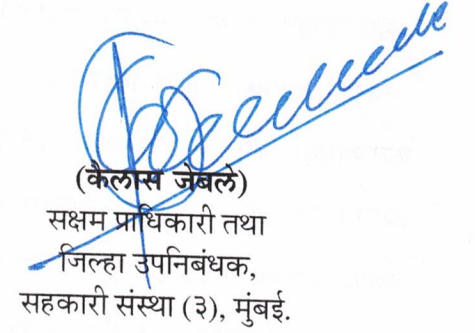 (कैलास जेबले)
सक्षम प्राधिकारी तथा
जिल्हा उपनिबंधक,
सहकारी संस्था (३), मुंबई.